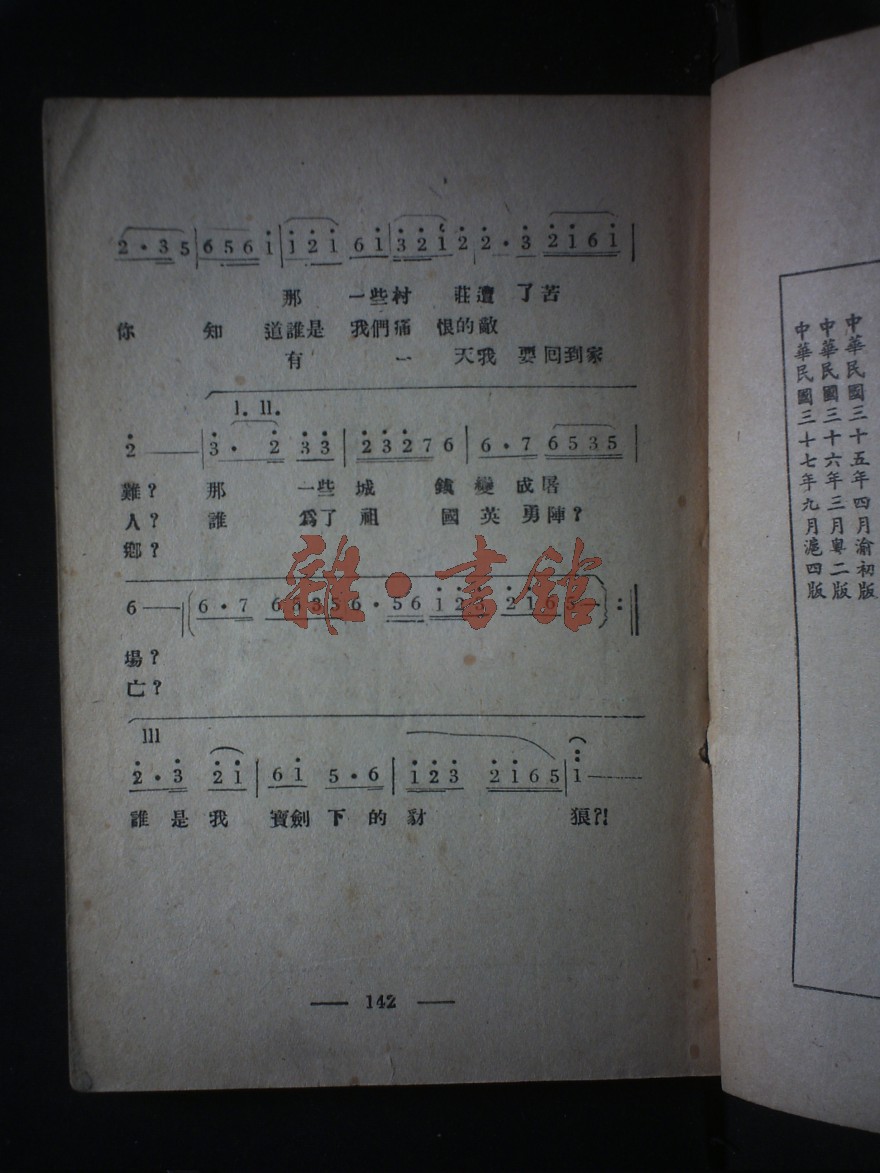 2 · 3 5 | 6 5 6 i | i 2 i 6 i | 3 2 i 2 2 · 3 2 i 6 i |
那 一些村 莊遭 了苦
你 知 道誰是 我們痛 恨的敵
有 一 天我 要回到家
I. II.
2 — | 3 · 2 3 3 | 2 3 2 7 6 | 6 · 7 6 5 3 5 |
難？ 那 一些 城 鎮變 成屠
人？ 誰 爲了 祖 國英 勇陣？
鄉？
6 — ‖ ( 6 · 7 6 6 3 5 6 · 5 6 i 2 3 2 i 6 5 — ) :‖
場？
亡？
III
2 · 3 2 i | 6 i 5 · 6 | i 2 3 2 i 6 5 | i —
誰 是 我 寶劍 下 的 豺 狼？！
— 142 —
雜·書館
中華民國三十五年四月渝初版
中華民國三十六年三月粵二版
中華民國三十七年九月滬四版